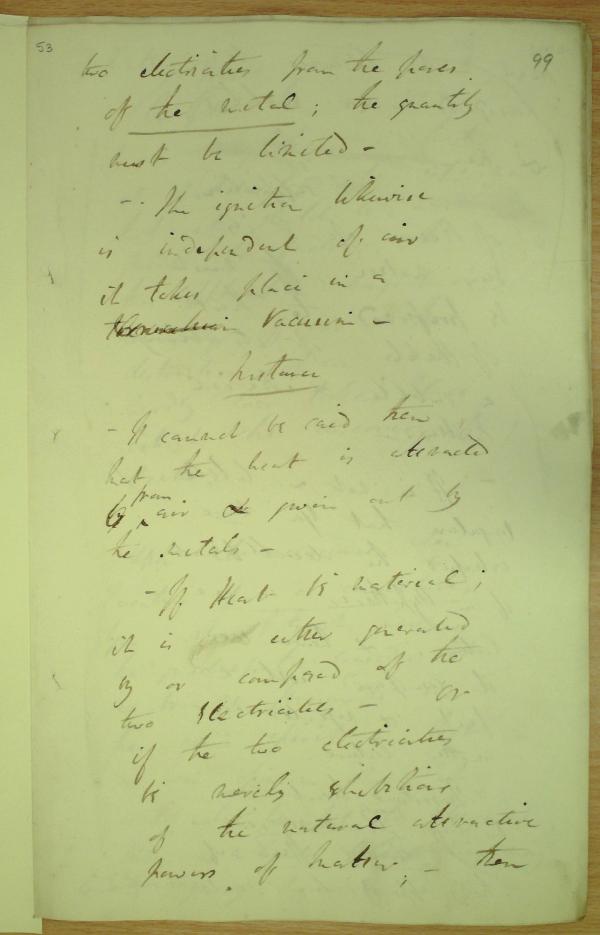 53
99
two electricities from the pores
of the metal; the quantity
must be limited -
- The ignition likewise
is independent of air
it takes place in a
Vacuum -
Instance
- It cannot be said then
that the heat is attracted
by from air & given out by
the metals -
- If Heat be material;
it is either generated
by or composed of the
two Electricities - or
if the two electricities
be merely exhibitions
of the natural attractive
powers of matter; - then